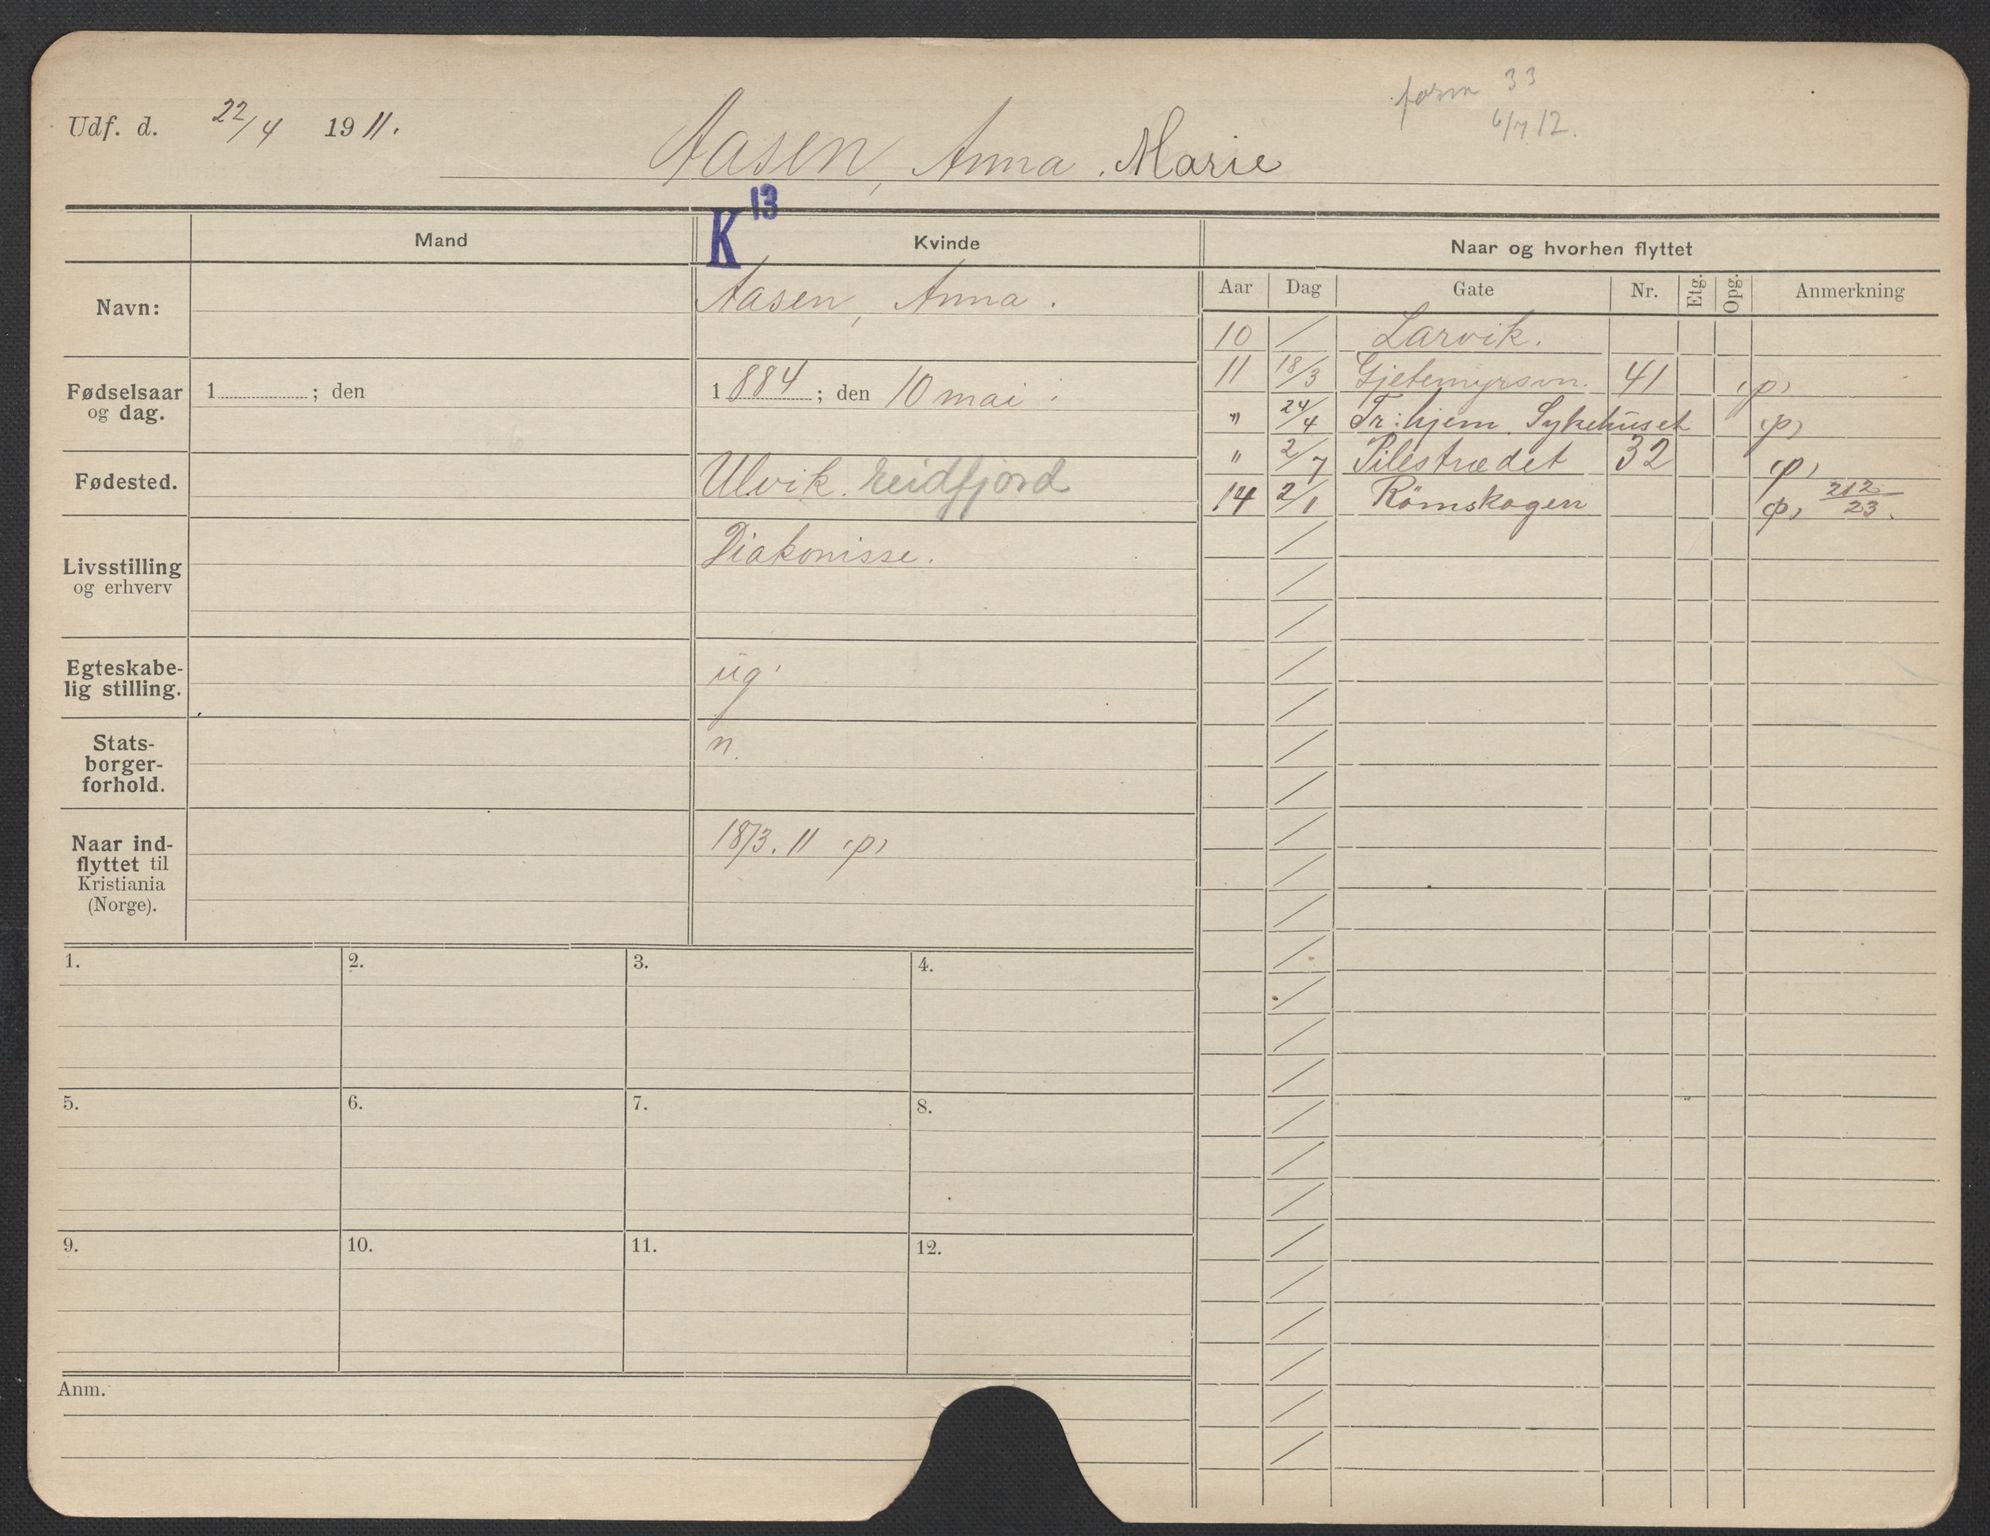 Udf. d. 22/4 1911.
form 33
6/7 12.
Aasen, Anna. Marie
K 13
Mand
Kvinde
Naar og hvorhen flyttet
Aar Dag Gate Nr. Etg. Opg. Anmerkning
Navn:
Aasen, Anna.
Fødselsaar og dag.
1 ; den
1884 ; den 10 mai
Fødested.
Ulvik. Eeidfjord
Livsstilling og erhverv
Diakonisse.
Egteskabe-
lig stilling.
ug.
Stats-
borger-
forhold.
n.
Naar ind-
flyttet til
Kristiania
(Norge).
18/3. 11 p,
10 / Larvik.
11 18/3 Gjetemyrsvn. 41 p,
" 24/4 Tr: hjem. Sykehuset p,
" 2/7 Pilestrædet 32 p,
14 2/1 Römskogen p, 212/23.
1. 2. 3. 4.
5. 6. 7. 8.
9. 10. 11. 12.
Anm.